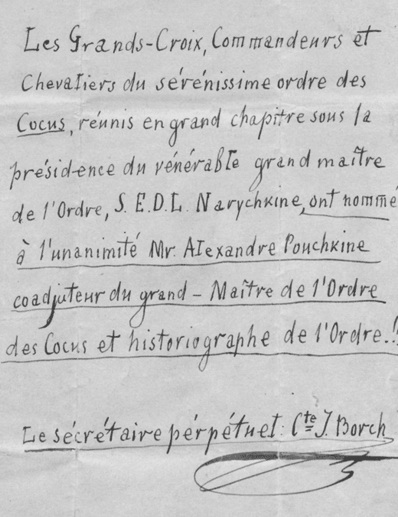 Les Grands-Croix, Commandeurs et
Chevaliers du sérénissime ordre des
Cocus, réunis en grand chapitre sous la
présid-ence du vénérable grand maître
de l'Ordre, S.E.D.L. Narychkine, ont nommé
à l'unanimité Mr. Alexandre Pouchkine
coadjuteur du grand-Maître de l'Ordre
des Cocus et historiographe de l'Ordre.!
Le sécrétaire pérpétuel: Cte J. Borch